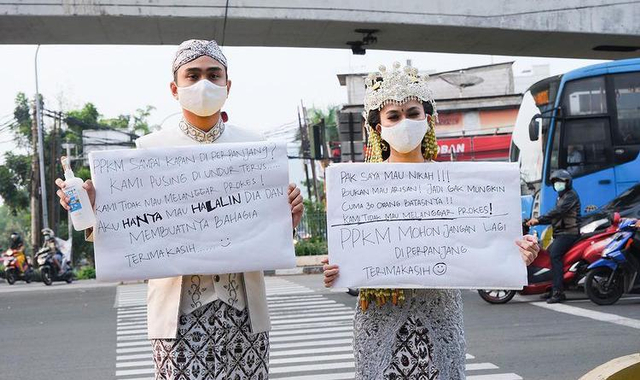 PPKM SAMPAI KAPAN DI PERPANJANG??
KAMI PUSING DI UNDUR TERUS
KAMI TIDAK MAU MELANGGAR PROKES!
AKU HANYA MAU HALALIN DIA DAN
MEMBUATNYA BAHAGIA
TERIMAKASIH......☺
PAK SAYA MAU NIKAH!!!
BUKAN MAU ARISAN! JADI GAK MUNGKIN
CUMA 30 ORANG BATASNYA!!
KAMI TIDAK MAU MELANGGAR PROKES!
PPKM MOHON JANGAN LAGI
DI PERPANJANG
TERIMAKASIH☺